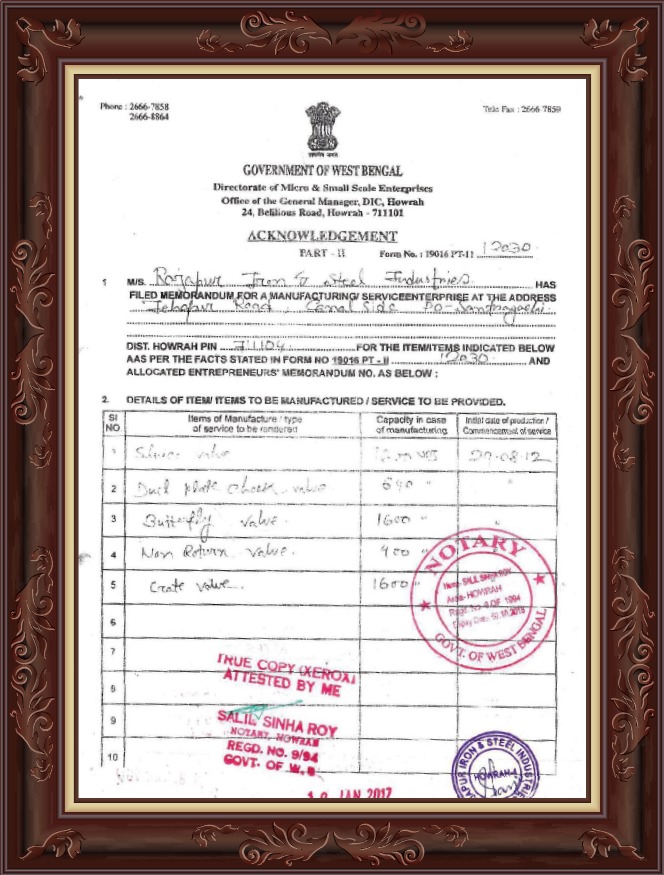 Phone : 2666-7858
2666-8864
Tele Fax : 2666-7859
GOVERNMENT OF WEST BENGAL
Directorate of Micro & Small Scale Enterprises
Office of the General Manager, DIC, Howrah
24, Belilious Road, Howrah - 711101
ACKNOWLEDGEMENT
PART - II
Form No. : 19016 PT-11 12030
1 M/S. Rajapur Iron & Steel Industries HAS
FILED MEMORANDUM FOR A MANUFACTURING/ SERVICEENTERPRISE AT THE ADDRESS
Road, Canal Side PO-
DIST. HOWRAH PIN 711104 FOR THE ITEM/ITEMS INDICATED BELOW
AAS PER THE FACTS STATED IN FORM NO 19016 PT - II 12030 AND
ALLOCATED ENTREPRENEURS' MEMORANDUM NO. AS BELOW :
2. DETAILS OF ITEM/ ITEMS TO BE MANUFACTURED / SERVICE TO BE PROVIDED.
Sl NO. Items of Manufacture / type of service to be rendered Capacity in case of manufacturing Initial date of production / Commencement of service
1 valve 27-08-12
2 plate check valve "
3 Butterfly valve. 1600 " "
4 Non Return valve. 400 "
5 valve. 1600 "
6
7
8
9
10
NOTARY
Name- SALIL SINHA ROY
Area- HOWRAH
Regd. No. 9 OF 1994
Expiry Date-
GOVT. OF WEST BENGAL
TRUE COPY (XEROX)
ATTESTED BY ME
SALIL SINHA ROY
NOTARY, HOWRAH
REGD. NO. 9/94
GOVT. OF W.B
JAN 2017
IRON & STEEL
HOWRAH-4